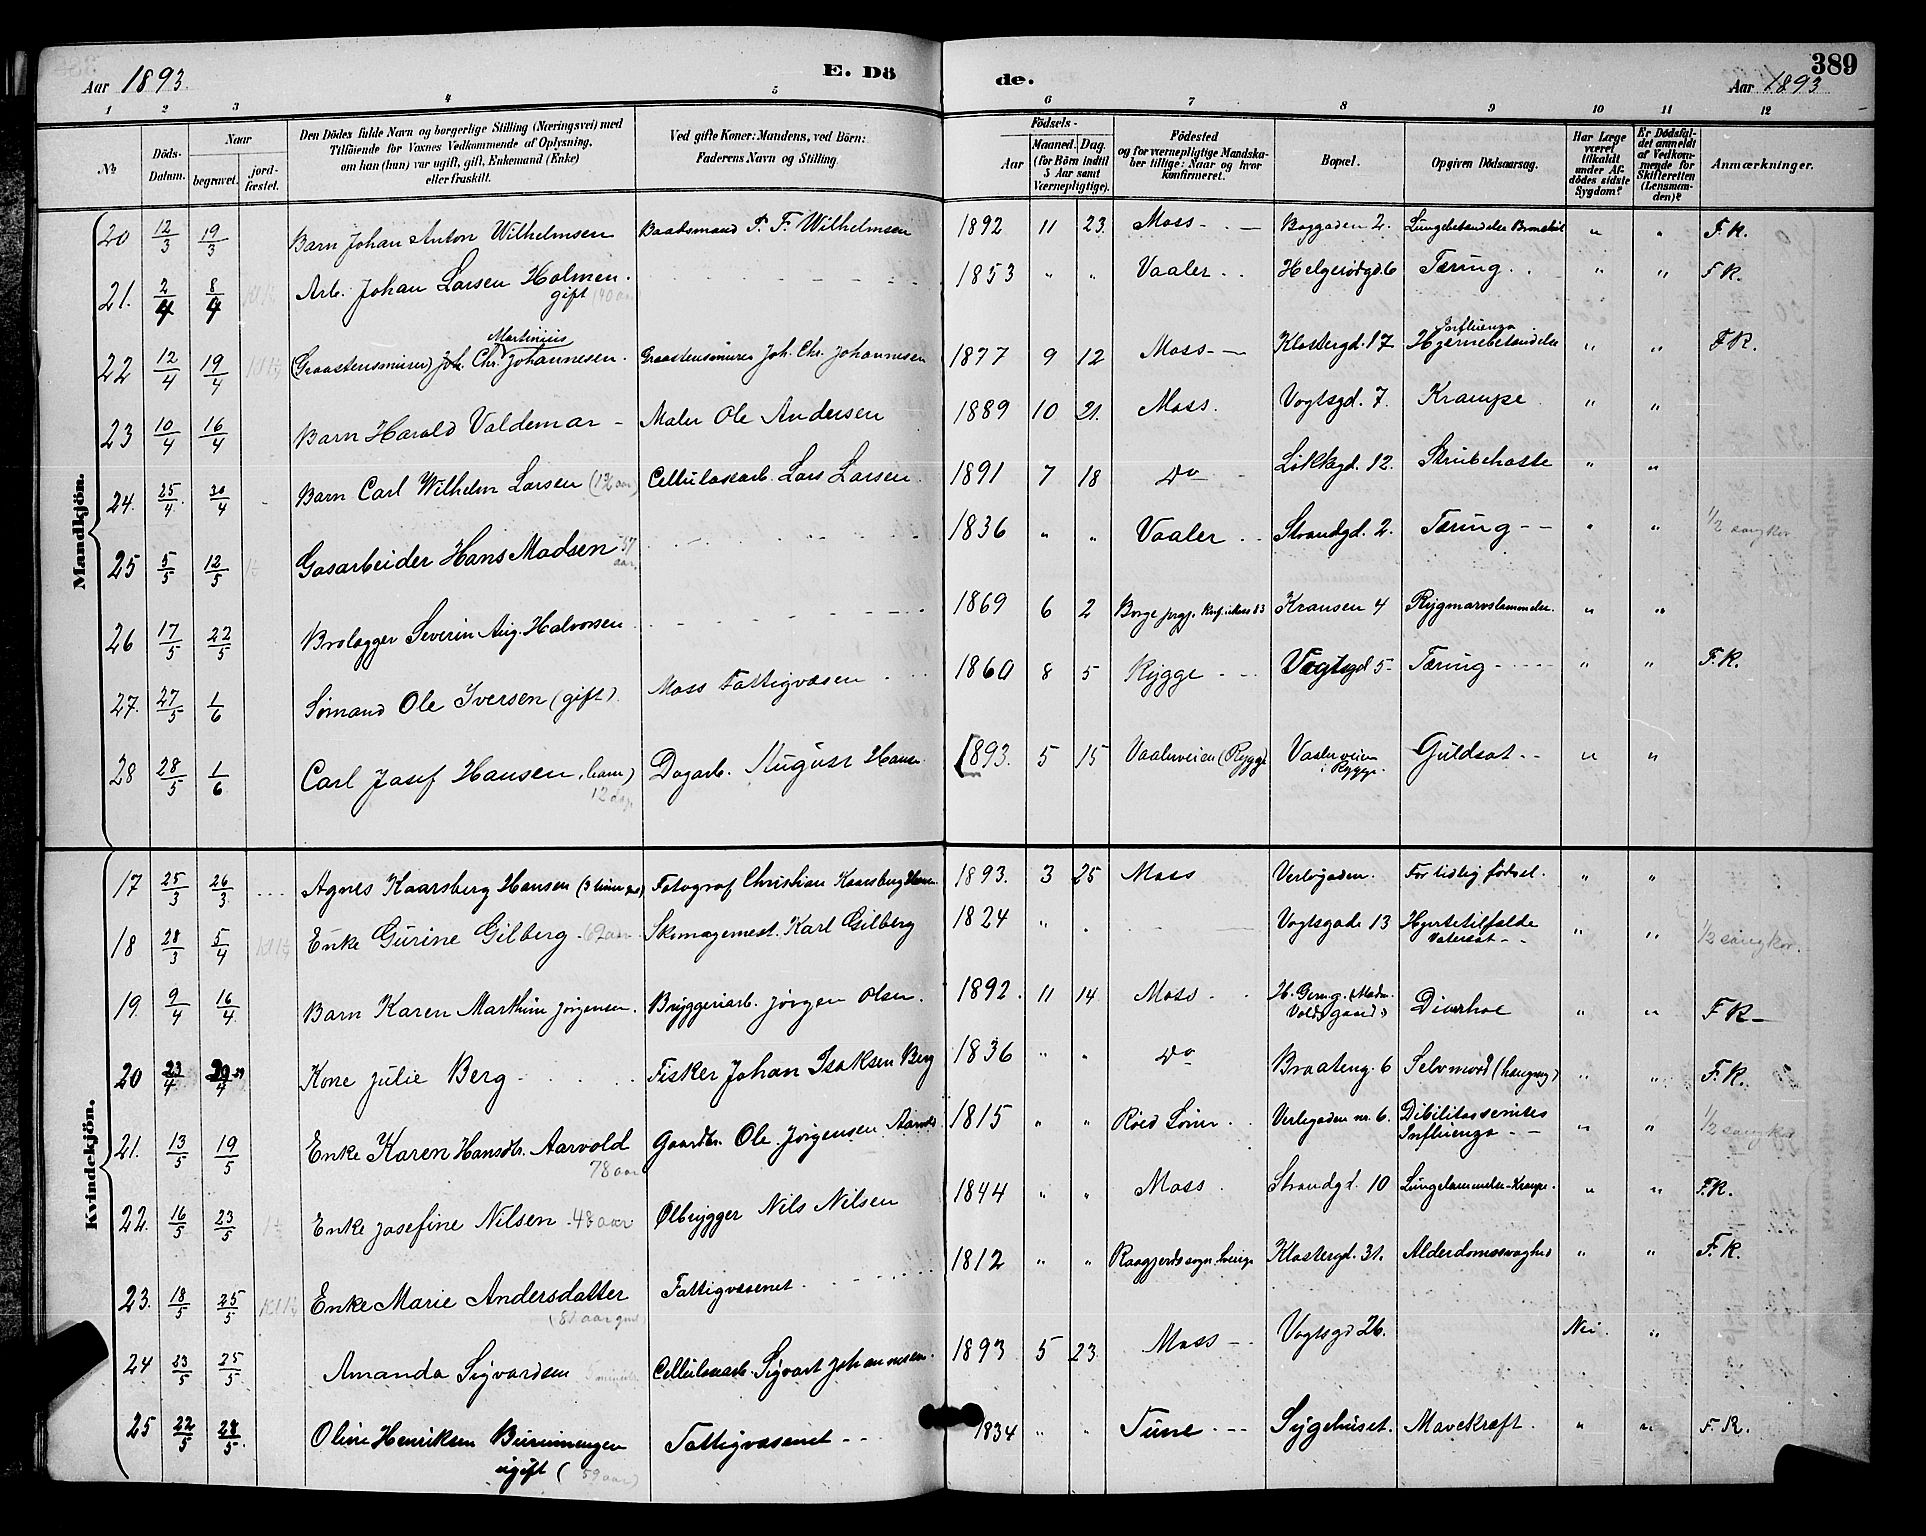 Aar 1893.
E. Dö
de.
389
Aar 1893
1 2 3 4 5 6 7 8 9 10 11 12
№
Döds-Datum.
Naar
begravet.
jord-fæstet.
Den Dödes fulde Navn og borgerlige Stilling (Næringsvei) med
Tilföiende for Voxnes Vedkommende af Oplysning,
om han (hun) var ugift, gift, Enkemand (Enke)
eller fraskilt.
Ved gifte Koner: Mandens, ved Börn:
Faderens Navn og Stilling.
Födsels-
Aar
Maaned. Dag.
(for Börn indtil
5 Aar samt
Værnepligtige).
Födested
og for værnepligtige Mandska-
ber tillige: Naar og hvor
konfirmeret.
Bopæl.
Opgiven Dödsaarsag.
Har Læge
været
tilkaldt
under Af-
dödes sidste
Sygdom?
Er Dödsfal-
det anmeldt
af Vedkom-
mende for
Skifteretten
(Lensman-
den)?
Anmærkninger.
Mandkjön.
20 12/3 19/3 Barn Johan Anton Wilhelmsen Baadsmand P. F. Wilhelmsen 1892 11 23. Moss Boggaden 2. Lungebetændelse Bronchit " " F. K.
21. 2/4 8/4 Arb. Johan Larsen Holmen. 1853 " " Vaaler Helgerödgd. 6 Tæring " " F. K.
gift (40 aar
Martinius
22 12/4 19/4 (Graastensmurer) Joh. Chr. Johannesen. Graastensmurer Joh. Chr. Johannesen 1877 9 12 Moss Klostergd. 17 Influenza Hjernebetændelse " " F. K.
23 10/4 16/4 Barn Harald Valdemar Maler Ole Andersen 1889 10 21. Moss. Vogtsgd. 7. Krampe " "
24. 25/4 30/4 Barn Carl Wilhelm Larsen (1 3/4 aar) Cellulosearb. Lars Larsen. 1891 7 18 Do Løkkegd. 12. Strubehoste " "
25 5/5 12/5 Gasarbeider Hans Madsen 57 aar. 1836 " " Vaaler Strandgd. 2. Tæring " " 1/2 sangkor
26 17/5 22/5 Brolægger Severin Aug. Halvorsen 1869 6 2 Borge prgj. Knf. i Moss 83 Kransen 4 Rygmarvslammelse. " "
27. 27/5 1/6 Sømand Ole Iversen (gift). Moss Fattigvæsen 1860 8 5 Rygge Vogtsgd 5 Tæring " " F. K.
28 28/5 1/6 Carl Josef Hansen (barn) Dagarb. August Hansen. 1893. 5 15 Vaalerveien (Rygge) Vaalerveien i Rygge. Guldsot " "
12 dage
Kvindekjön.
17 25/3 26/3 Agnes Kaarsberg Hansen (3 timer gml) Fotograf Christian Kaarsberg Hansen 1893. 3 25 Moss Verlegaden. For tidlig fødsel. " "
18 28/3 5/4 Enke Gurine Gilberg 69 aar Skomagemest. Karl Gilberg 1824 " " Vogtsgade 13 Hjertetilfælde Vatersot " " 1/2 sangkor.
19. 9/4 16/4 Barn Karen Marthine Jörgensen. Bryggeriarb. Jörgen Olsen. 1892. 11 14. Moss H. Gerng. (Madm. Voldsgaard) Diarrhoe " " F K
20 23/4 29/4 Kone Julie Berg Fisker Johan Isaksen Berg 1836 " " Do Braateng. 6 Selvmord (hængning) " " F. K.
21. 13/5 19/5 Enke Karen Hansdtr. Aarvold Gaardbr. Ole Jörgensen Aarvold 1815 " " Roed Soner Verlegaden nr. 6. Dibilitas senites Influenza " " 1/2 sangkor
78 aar
22. 16/5 23/5 Enke Josefine Nilsen 48 aar Ølbrygger Nils Nilsen 1844 " " Moss Strandgd. 10 Lungelammelse-Krampe. " " F. K.
23. 18/5 25/5 Enke Marie Andersdatter Fattigvæsenet. 1812 " " Raagjerds sogn Sverige Klostergd. 31. Alderdomssvaghed " " F. K.
(81 aar gml
24 23/5 25/5 Amanda Sigvardsen 5 minutter Cellulosearb. Sigvart Johannesen. 1893 5 23 Moss Vogtsgd 26. Nei. "
25 22/5 28/5 Oline Henriksen Fattigvæsenet 1834 " " Tune Sygehuset. Mavekræft. " " F. K.
ugift (59 aar)